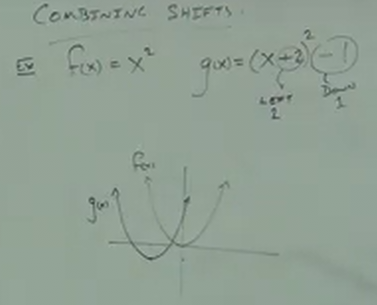 COMBINING SHIFTS.
Ex f(x) = x² g(x) = (x+2)² -1
LEFT 2 DOWN 1
f(x)
g(x)